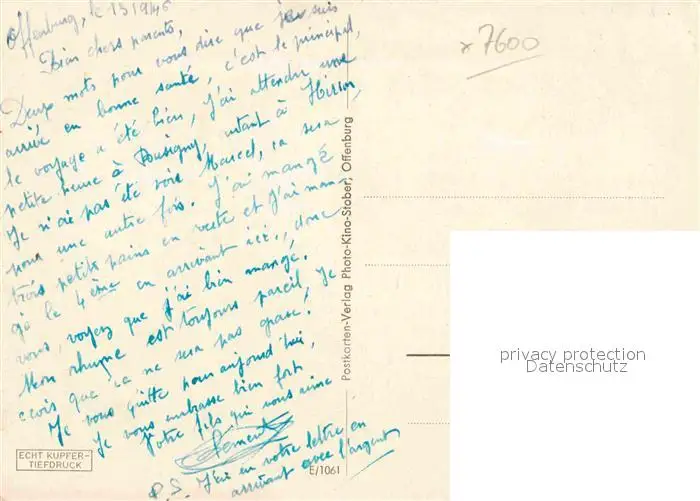 Offenburg, le 1319/46
Bien chers parents,
Deux mots pour vous dire que je suis
arrivé en bonne santé, c'est le principal,
le voyage a été bien, j'ai attendu une
petite heure à Busigny, autant à Hirson,
Je n'ai pas été voir Marcel, ça sera
pour une autre fois. J'ai mangé
trois petits pains en route et j'ai man-
gé le 4ème en arrivant ici, donc
vous voyez que j'ai bien mangé.
Mon rhume est toujours pareil, Je
crois que ça ne sera pas grave.
Je vous quitte pour aujourd'hui,
Je vous embrasse bien fort
Votre fils qui vous aime
Clément
P.S. J'ai eu votre lettre en
arrivant avec l'argent
ECHT KUPFER-
TIEFDRUCK
E/1061
Postkarten-Verlag Photo-Kino-Stober, Offenburg
x 7600
privacy protection
Datenschutz